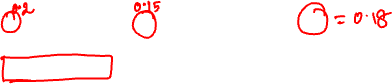 0.2
0.15
= 0.18